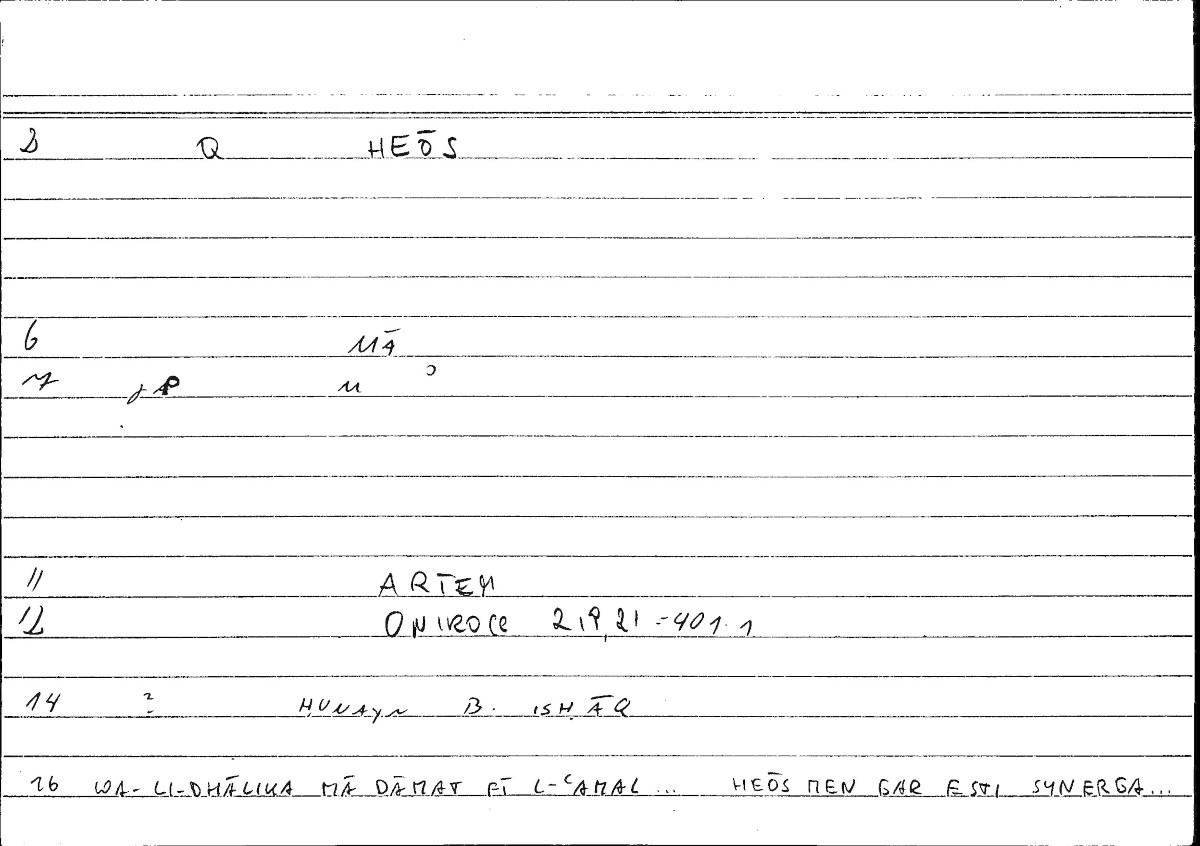 3 Q HEŌS
6 MĀ
7 jAP M ɔ
11 ARTEM
12 ONIROCR 219,21 - 401.1
14 ? ḤUNAYN B. ISḤĀQ
16 WA-LI-DHĀLIKA MĀ DĀMAT FĪ L-ʿAMAL... HEŌS MEN GAR ESTI SYNERGA...